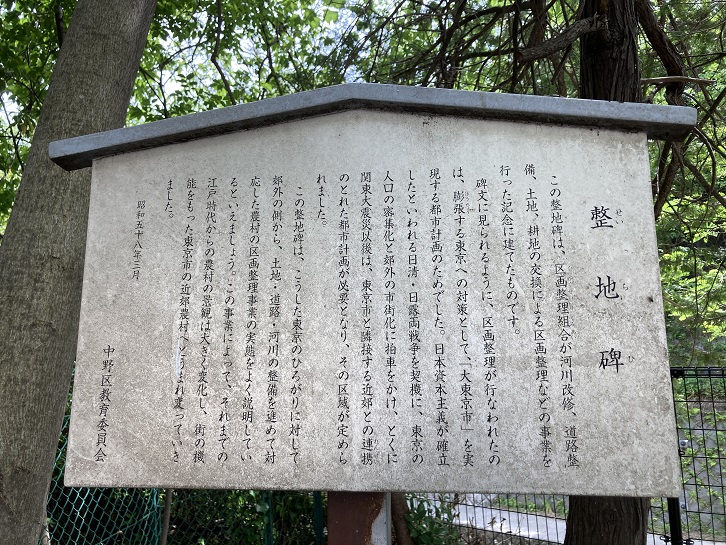 整地碑
せいちひ
この整地碑は、区画整理組合が河川改修、道路整
備、土地、耕地の交換による区画整理などの事業を
行った記念に建てたものです。
碑文に見られるように、区画整理が行なわれたの
は、膨張する東京への対策として、「大東京市」を実
現する都市計画のためでした。日本資本主義が確立
したといわれる日清・日露両戦争を契機に、東京の
人口の密集化と郊外の市街化に拍車をかけ、とくに
関東大震災以後は、東京市と隣接する近郊との連携
のとれた都市計画が必要となり、その区域が定めら
れました。
この整地碑は、こうした東京のひろがりに対して
郊外の側から、土地・道路・河川の整備を進めて対
応した農村の区画整理事業の実態をよく説明してい
るといえましょう。この事業によって、それまでの
江戸時代からの農村の景観は大きく変化し、街の機
能をもった東京市の近郊農村へとうまれ変っていき
ました。
昭和五十八年三月
中野区教育委員会